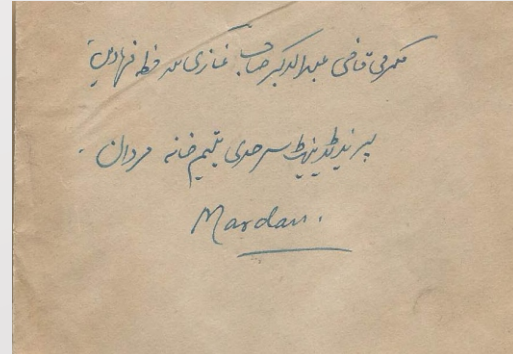 مکرمی قاضی عبدالاکبر صاحب غازی
سپرنٹنڈنٹ سرحدی یتیم خانہ مردان -
Mardan.